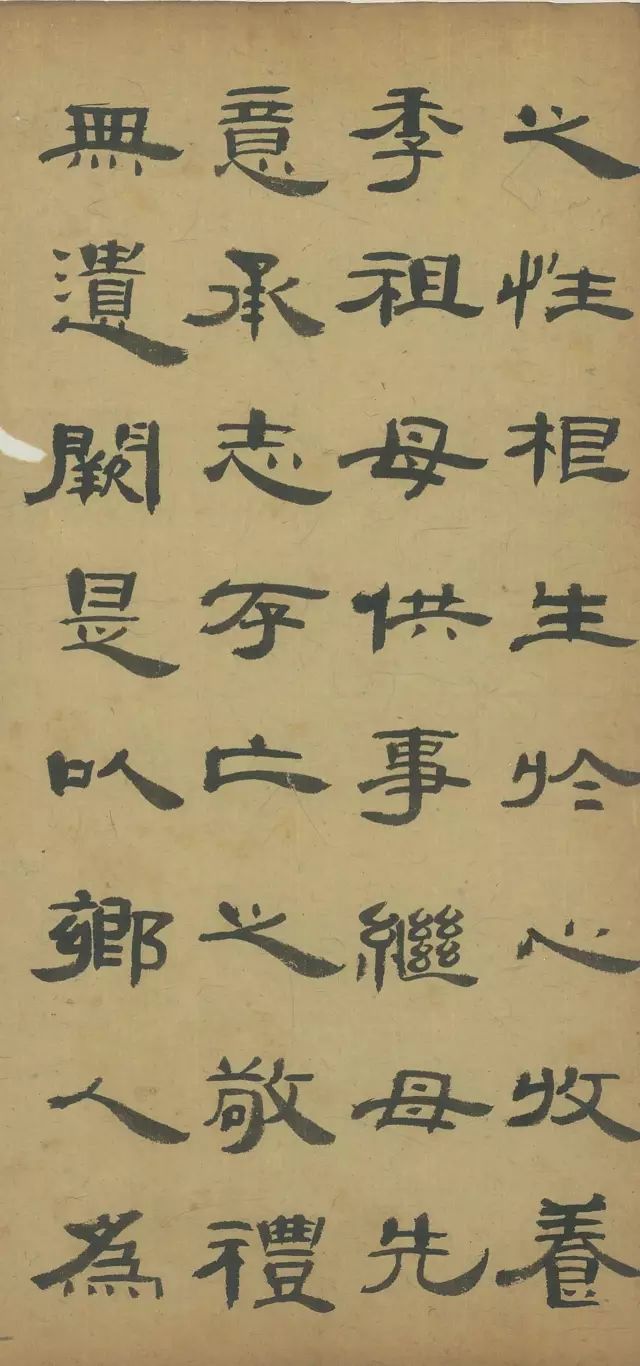 之性根生於心收養
季祖母供事繼母先
意承志存亡之敬禮
無遺闕是以鄉人為